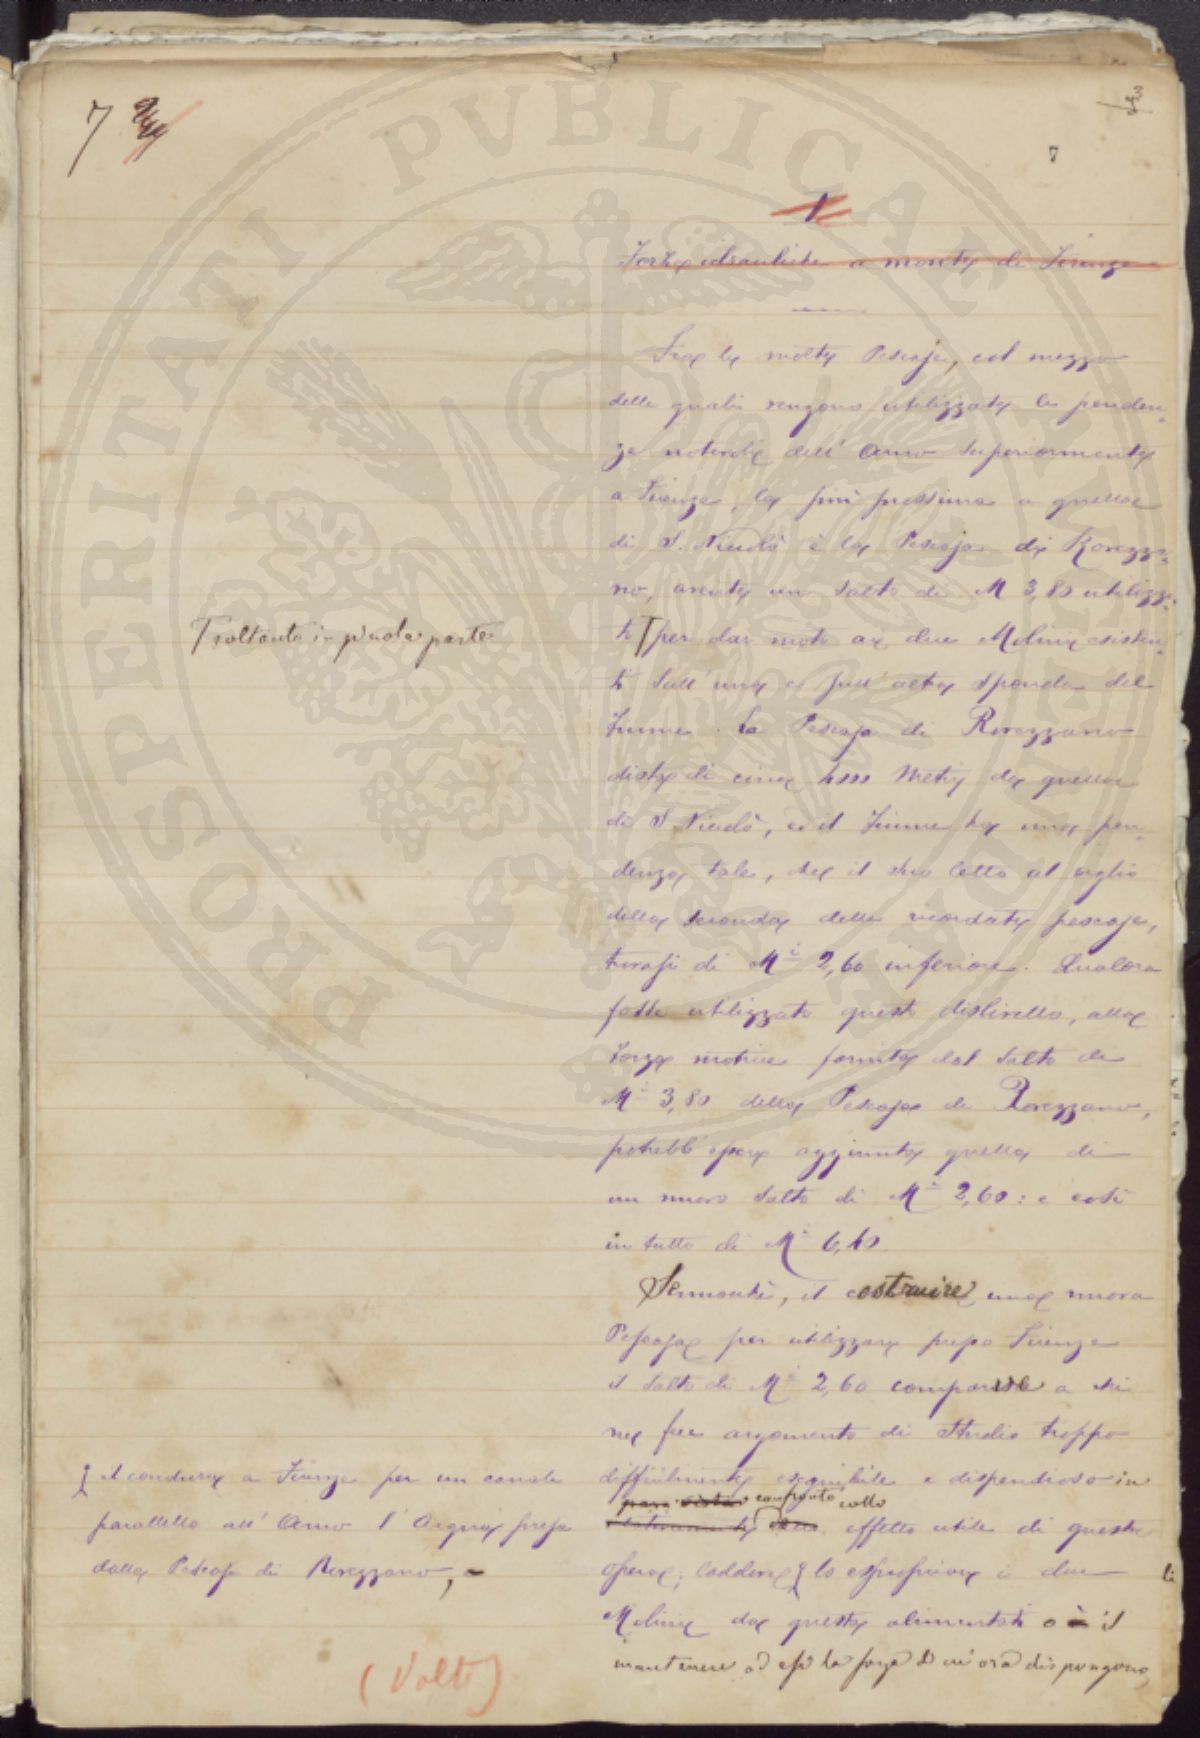 7
3
7
1
Forze idrauliche a monte di Firenze
Fra le molte Pescaje, col mezzo
delle quali vengono utilizzate le penden-
ze naturali dell' Arno superiormente
a Firenze, la più prossima a quella
di S. Niccolò è la Pescaja di Rovezza-
no, avente un salto di M 3,80 utilizza-
to per dar moto ai due Molini esisten-
ti sull' una e sull' altra sponda del
Fiume. La Pescaja di Rovezzano
dista di circa Metri da quella
di S. Niccolò, ed il Fiume ha una pen-
denza tale, che il suo letto al ciglio
della seconda delle ricordate pescaje,
trovasi di Mi 2,60 inferiore. Qualora
fosse utilizzato questo dislivello, alla
forza motrice fornita dal salto di
Mi 3,80 della Pescaja di Rovezzano,
potrebb' essere aggiunta quella di
un nuovo salto di Mi 2,60: e così
in tutto di Mi 6,40.
Sennonchè, il costruire una nuova
Pescaja per utilizzare presso Firenze
il salto di Mi 2,60 comparve a chi
ne fece argomento di Studio troppo
difficilmente eseguibile e dispendioso in
confronto collo
effetto utile di queste
opere; laddove lo espropriare i due
Molini da questa alimentati o il
mantenere ad essi la forza di cui ora dispongono,
li
T soltanto in piccola parte
il condurre a Firenze per un canale
parallelo all' Arno l' Acqua presa
dalla Pescaja di Rovezzano,
(Volta)
PROSPERITATI PVBLICAE